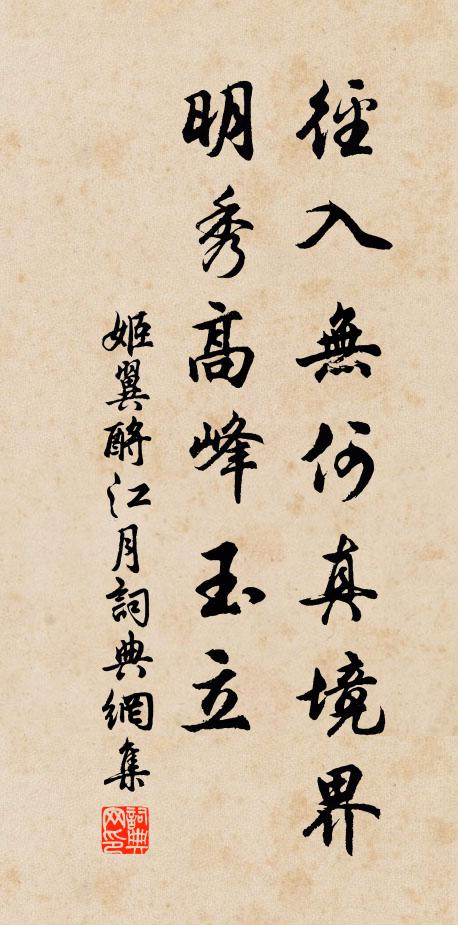 徑入無何真境界
明秀高峰玉立
姬翼酹江月詞典網集
詞典网印